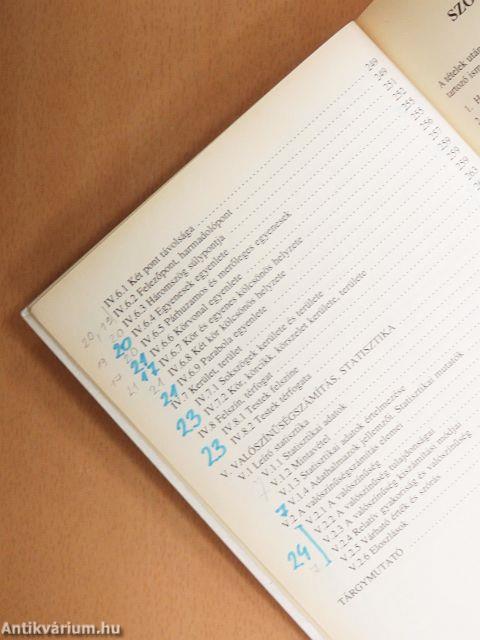 IV.6.1 Két pont távolsága
IV.6.2 Felezőpont, harmadolópont
IV.6.3 Háromszög súlypontja
IV.6.4 Egyenesek egyenlete
IV.6.5 Párhuzamos és merőleges egyenesek
IV.6.6 Körvonal egyenlete
IV.6.7 Kör és egyenes kölcsönös helyzete
IV.6.8 Két kör kölcsönös helyzete
IV.6.9 Parabola egyenlete
IV.7 Kerület, terület
IV.7.1 Sokszögek kerülete és területe
IV.7.2 Kör, körcikk, körszelet kerülete, területe
IV.8 Felszín, térfogat
IV.8.1 Testek felszíne
IV.8.2 Testek térfogata
V. VALÓSZÍNŰSÉGSZÁMÍTÁS, STATISZTIKA
V.1 Leíró statisztika
V.1.1 Statisztikai adatok
V.1.2 Mintavétel
V.1.3 Statisztikai adatok értelmezése
V.1.4 Adathalmazok jellemzői. Statisztikai mutatók
V.2 A valószínűségszámítás elemei
V.2.1 A valószínűség
V.2.2 A valószínűség tulajdonságai
V.2.3 A valószínűség kiszámítás módjai
V.2.4 Relatív gyakoriság és valószínűség
V.2.5 Várható érték és szórás
V.2.6 Eloszlások
TÁRGYMUTATÓ
20
21
17
21
23
23
7
24
A tételek után
tartozó ism
1. H
Antikvárium.hu